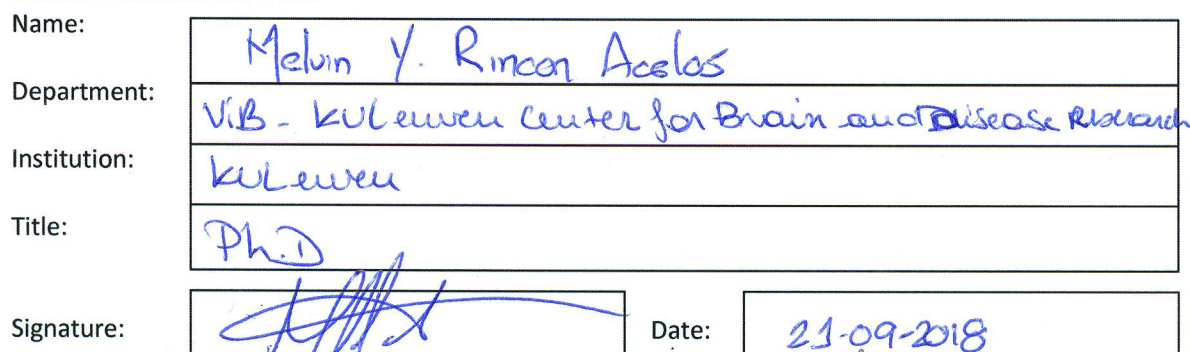 Name: Melvin Y. Rincon Acelas
Department: VIB - KULeuven Center for Brain and Disease Research
Institution: KULeuven
Title: Ph.D
Signature: Date: 21-09-2018